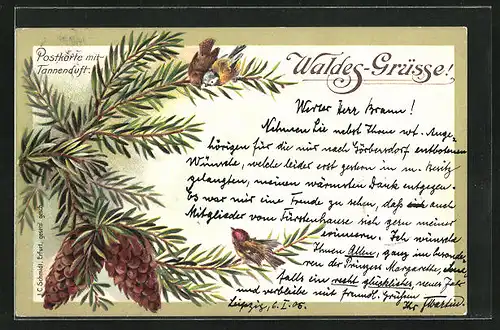 Postkarte mit
Tannenduft.
Waldes-Grüsse!
Werter Herr Braun!
Nehmen Sie nebst Ihren wt. Ange-
hörigen für die mir nach Görbersdorf entbotenen
Wünsche, welche leider erst gestern in m. Besitz
gelangten, meinen wärmsten Dank entgegen.
Es war mir eine Freude zu sehen, daß auch
Mitglieder vom Fürstenhause sich gern meiner
erinnern. Ich wünsche
Ihnen Allen, ganz im besonde-
ren der Prinzess Margarethe,
falls ein recht glückliches neues Jahr
und verbleibe mit freundl. Grüßen
Leipzig, 6. I. 05. Ihr Martin.
J. C. Schmidt, Erfurt, gesetzl. gesch.